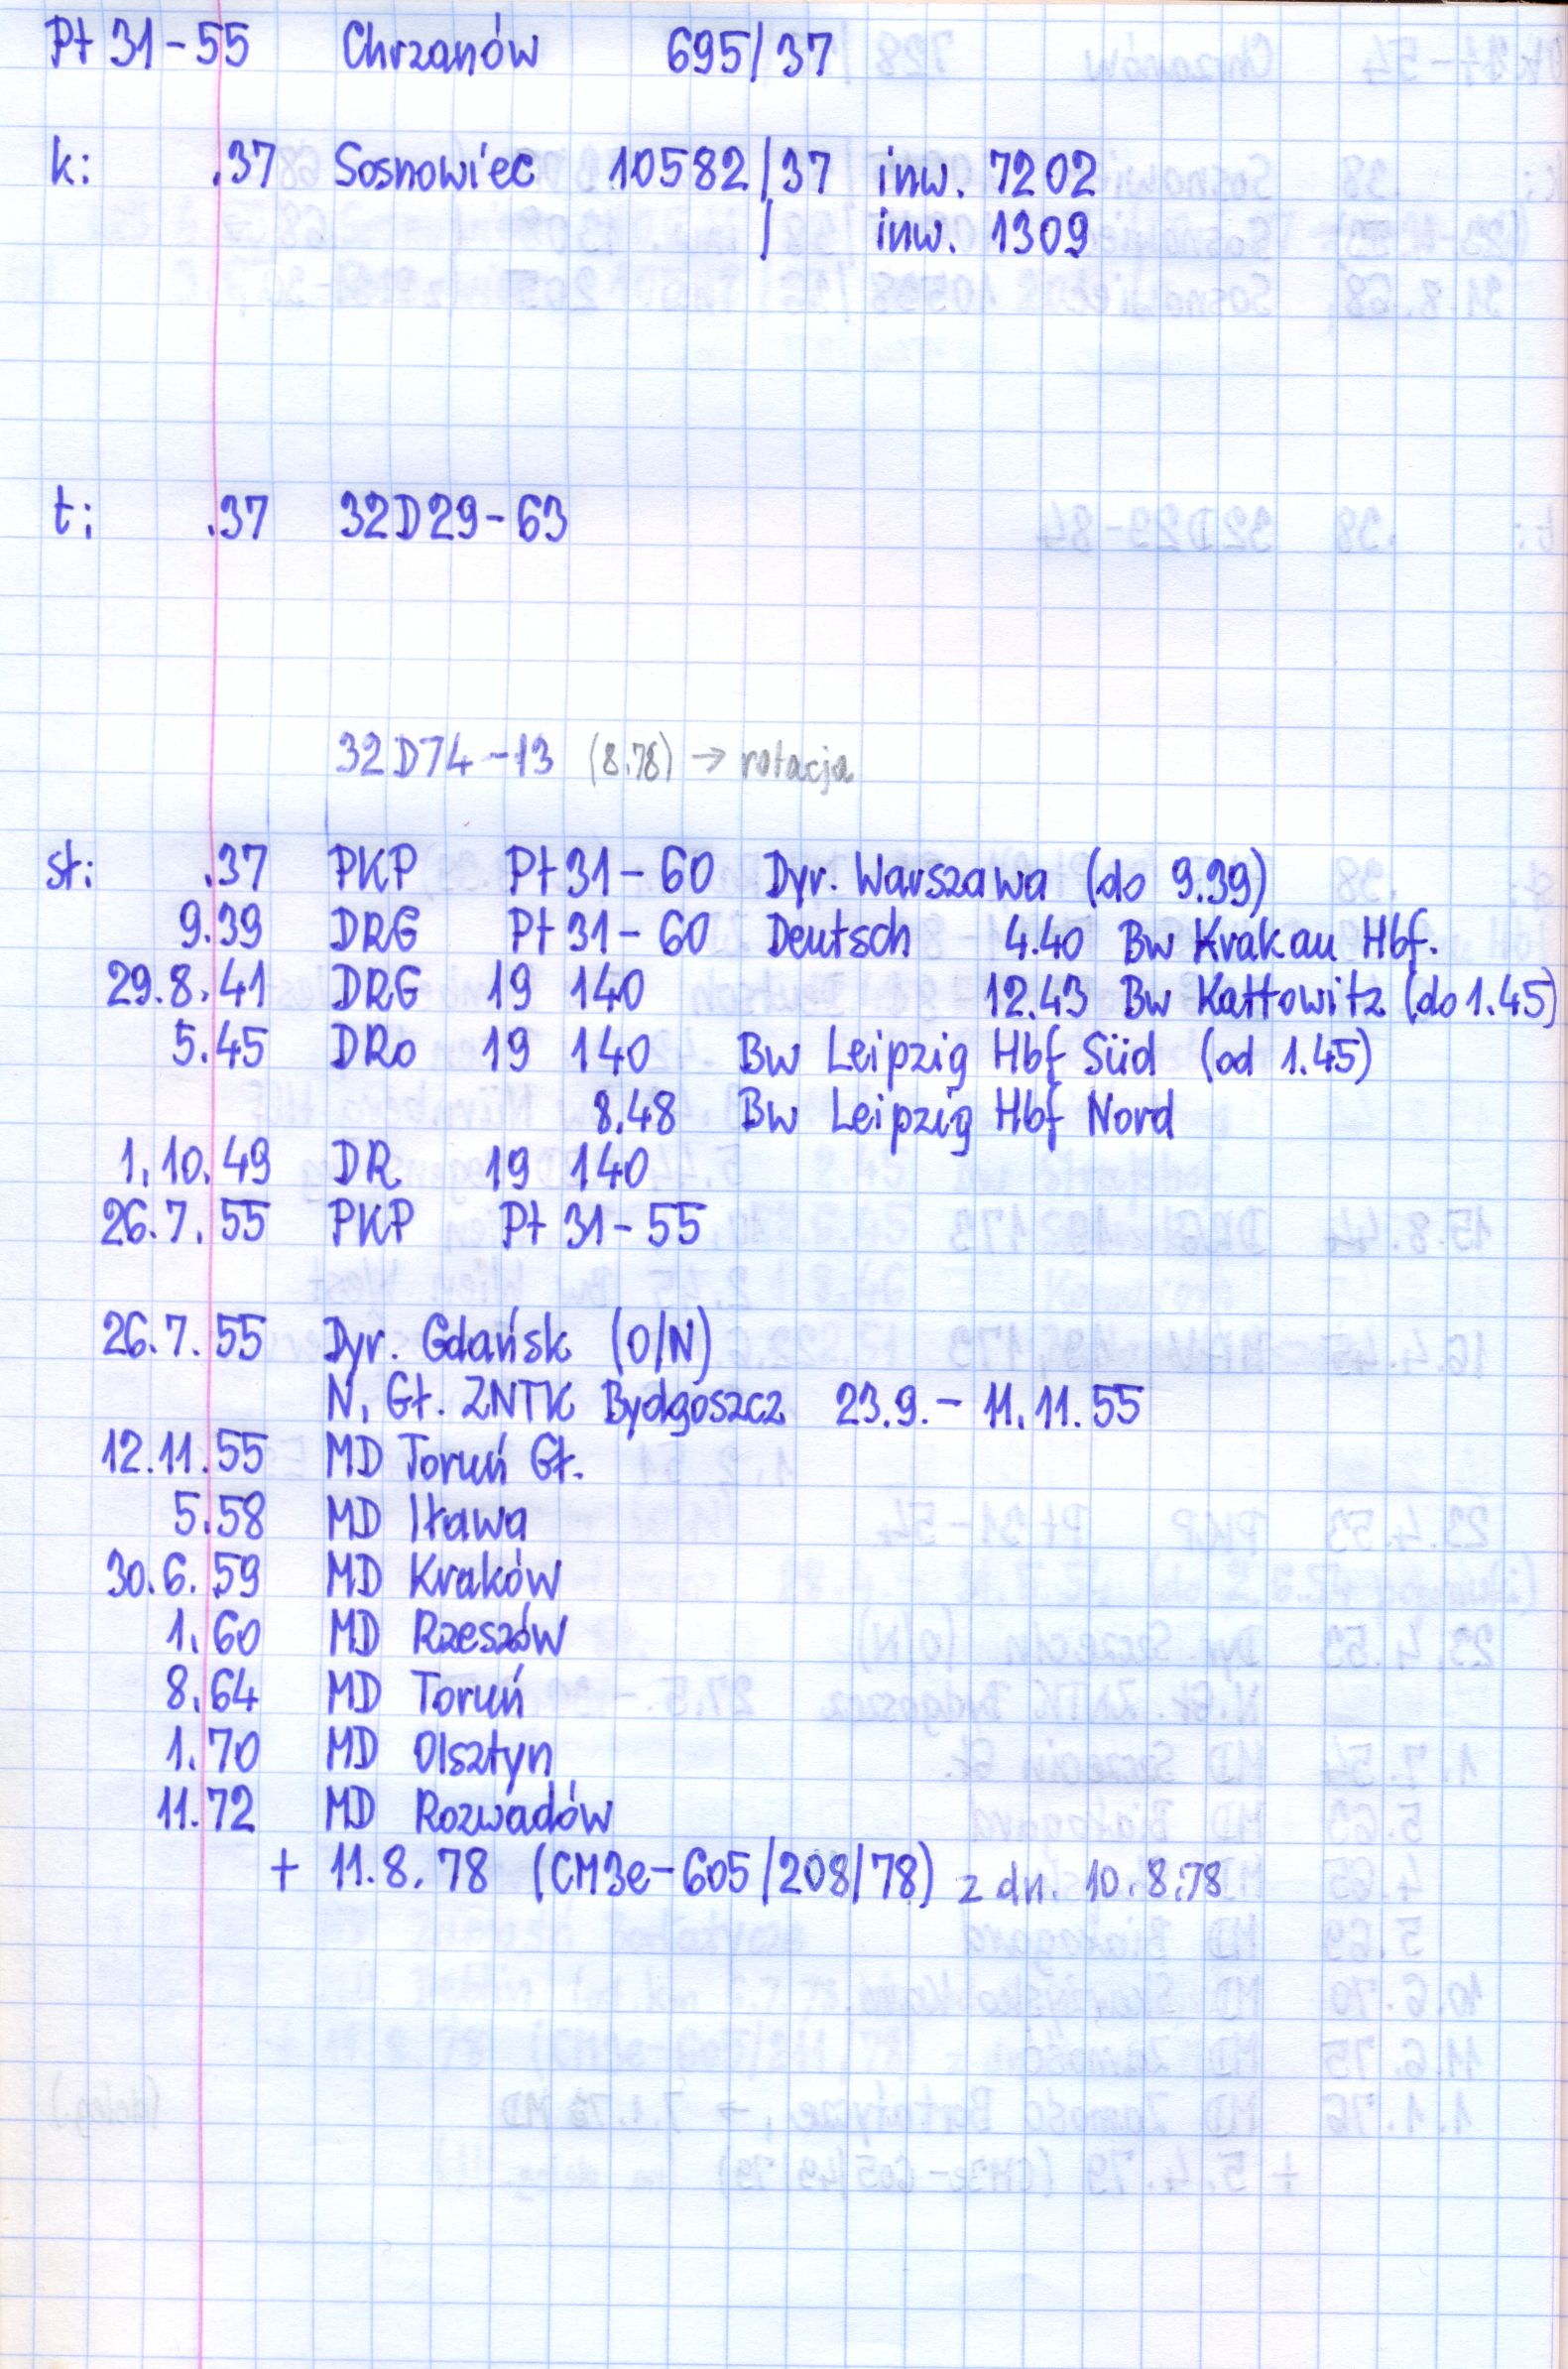 Pt 31-55 Chrzanów 695/37
k: .37 Sosnowiec 10582/37 inw. 7202
/ inw. 1309
t: .37 32D29-63
32D74-13 (8.78) → rotacja
st: .37 PKP Pt 31-60 Dyr. Warszawa (do 9.39)
9.39 DRG Pt 31-60 Deutsch 4.40 Bw Krakau Hbf.
29.8.41 DRG 19 140 12.43 Bw Kattowitz (do 1.45)
5.45 DRo 19 140 Bw Leipzig Hbf Süd (od 1.45)
8.48 Bw Leipzig Hbf Nord
1.10.49 DR 19 140
26.7.55 PKP Pt 31-55
26.7.55 Dyr. Gdańsk (O/N)
N. Gł. ZNTK Bydgoszcz 23.9.- 11.11.55
12.11.55 MD Toruń Gł.
5.58 MD Iława
30.6.59 MD Kraków
1.60 MD Rzeszów
8.64 MD Toruń
1.70 MD Olsztyn
11.72 MD Rozwadów
+ 11.8.78 (CM3e-605/208/78) z dn. 10.8.78